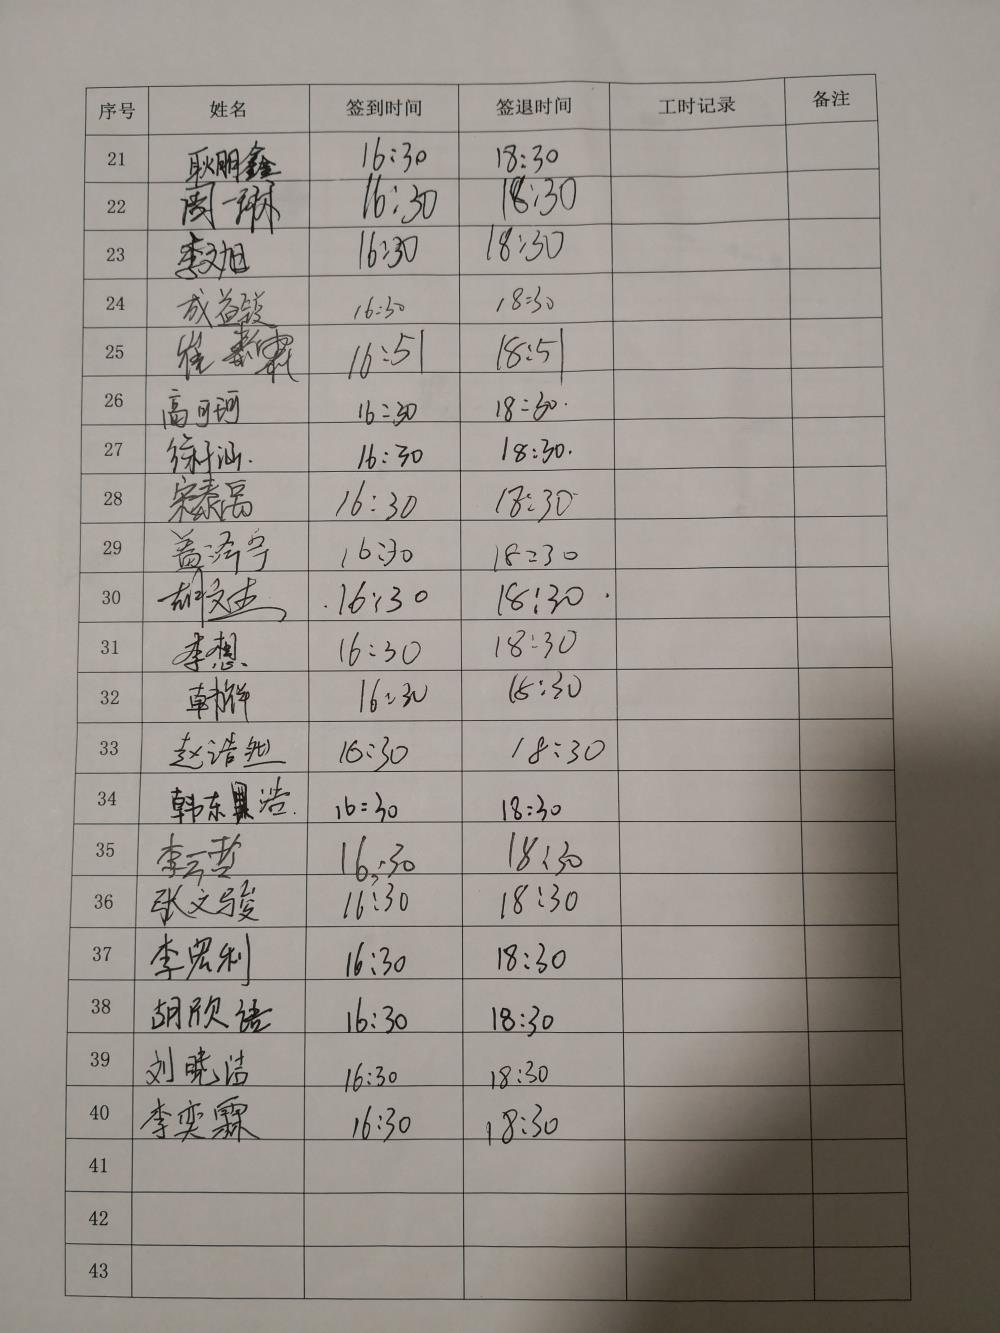 序号 姓名 签到时间 签退时间 工时记录 备注
21 耿明鑫 16:30 18:30
22 周一琳 16:30 18:30
23 李文旭 16:30 18:30
24 成益 16:30 18:30
25 16:51 18:51
26 高可珂 16:30 18:30.
27 徐 涵. 16:30 18:30.
28 宋泰禹 16:30 18:30
29 盖泽宁 16:30 18:30
30 胡文杰 16:30 18:30
31 李想 16:30 18:30
32 韩祥 16:30 18:30
33 赵浩然 16:30 18:30
34 韩东 浩. 16:30 18:30
35 李云哲 16:30 18:30
36 张文骏 16:30 18:30
37 李宏利 16:30 18:30
38 胡欣语 16:30 18:30
39 刘晓洁 16:30 18:30
40 李奕霖 16:30 18:30
41
42
43